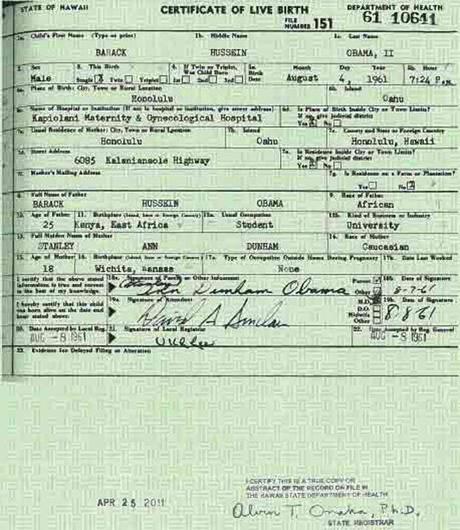 STATE OF HAWAII CERTIFICATE OF LIVE BIRTH DEPARTMENT OF HEALTH
FILE NUMBER 151 61 10641
1a. Child's First Name (Type or print) 1b. Middle Name 1c. Last Name
BARACK HUSSEIN OBAMA, II
2. Sex 3. This Birth 4. If Twin or Triplet, Was Child Born 5a. Birth Date Month Day Year 5b. Hour
Male Single X Twin Triplet 1st 2nd 3rd August 4, 1961 7:24 P.M.
6a. Place of Birth: City, Town or Rural Location 6b. Island
Honolulu Oahu
6c. Name of Hospital or Institution (If not in hospital or institution, give street address) 6d. Is Place of Birth Inside City or Town Limits? If no, give judicial district
Kapiolani Maternity & Gynecological Hospital Yes X No
7a. Usual Residence of Mother: City, Town or Rural Location 7b. Island 7c. County and State or Foreign Country
Honolulu Oahu Honolulu, Hawaii
7d. Street Address 7e. Is Residence Inside City or Town Limits? If no, give judicial district
6085 Kalanianaole Highway Yes X No
7f. Mother's Mailing Address 7g. Is Residence on a Farm or Plantation?
Yes No X
8. Full Name of Father 9. Race of Father
BARACK HUSSEIN OBAMA African
10. Age of Father 11. Birthplace (Island, State or Foreign Country) 12a. Usual Occupation 12b. Kind of Business or Industry
25 Kenya, East Africa Student University
13. Full Maiden Name of Mother 14. Race of Mother
STANLEY ANN DUNHAM Caucasian
15. Age of Mother 16. Birthplace (Island, State or Foreign Country) 17a. Type of Occupation Outside Home During Pregnancy 17b. Date Last Worked
18 Wichita, Kansas None
I certify that the above stated information is true and correct to the best of my knowledge. 18a. Signature of Parent or Other Informant Parent Other 18b. Date of Signature
Dunham Obama 8-7-61
I hereby certify that this child was born alive on the date and hour stated above. 19a. Signature of Attendant M.D. D.O. Midwife Other 19b. Date of Signature
David A Sinclair 8 8 61
20. Date Accepted by Local Reg. 21. Signature of Local Registrar 22. Date Accepted by Reg. General
AUG -8 1961 AUG -8 1961
23. Evidence for Delayed Filing or Alteration
APR 25 2011
I CERTIFY THIS IS A TRUE COPY OR
ABSTRACT OF THE RECORD ON FILE IN
THE HAWAII STATE DEPARTMENT OF HEALTH
Alvin T. Onaka, Ph.D.
STATE REGISTRAR